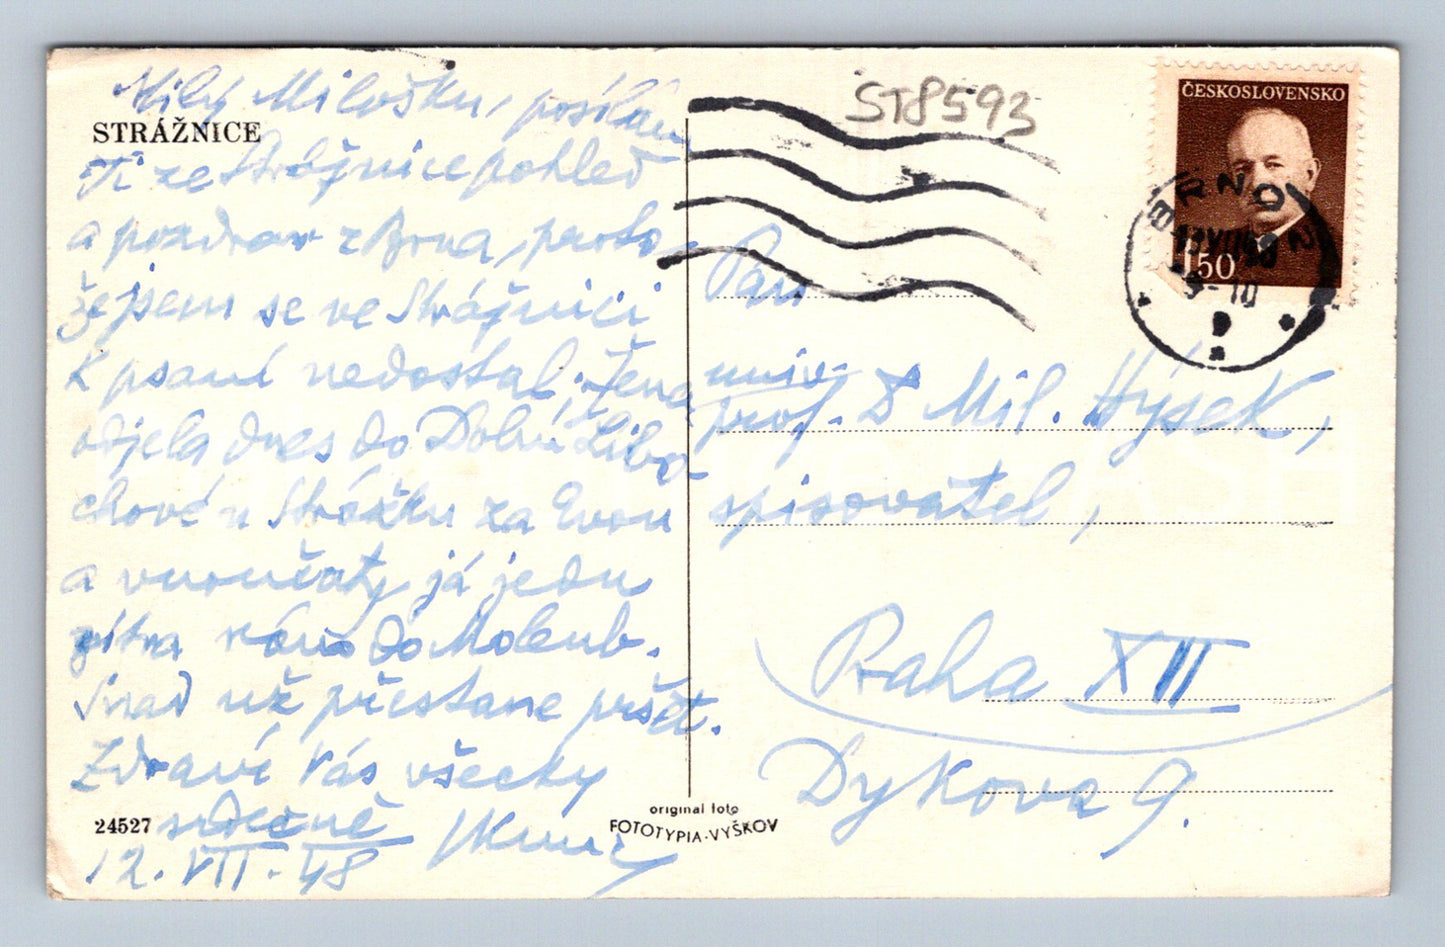 Milý Milošku, posílám
STRÁŽNICE
Ti ze Strážnice pohled
a pozdrav z Brna, proto-
že jsem se ve Strážnici
k psaní nedostal. Žena
odjela dnes do Dolní Libo-
chové u Strážku za Evou
a vnoučaty, já jedu
zítra ráno do Molenb.
Snad už přestane pršet.
Zdraví Vás všecky
srdečně
24527
12. VII. 48
original foto
FOTOTYPIA-VYŠKOV
ST8593
ČESKOSLOVENSKO
1.50
BRNO 2
9-10
Pan
univ.
prof. Dr Mil. Hýsek,
spisovatel,
Praha XII
Dykova 9.